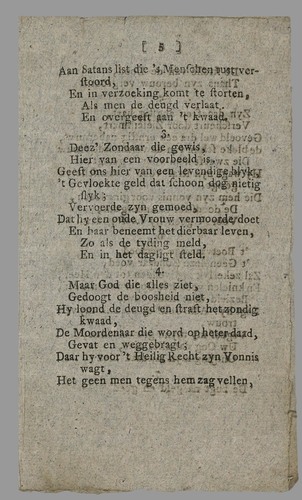 [ 5 ]
Aan Satans list die 's Menschen rust ver-
stoord,
En in verzoeking komt te storten,
Als men de deugd verlaat,
En overgeeft aan 't kwaad.
3.
Deez' Zondaar die gewis,
Hier van een voorbeeld is,
Geeft ons hier van een levendige blyk,
't Gevloekte geld dat schoon dog nietig
slyk;
Vervoerde zyn gemoed,
Dat hy een oude Vrouw vermoorde, doet
En haar beneemt het dierbaar leven,
Zo als de tyding meld,
En in het dagligt steld.
4.
Maar God die alles ziet,
Gedoogt de boosheid niet,
Hy loond de deugd en straft het zondig
kwaad,
De Moordenaar die word op heter daad,
Gevat en weggebragt;
Daar hy voor 't Heilig Recht zyn Vonnis
wagt,
Het geen men tegens hem zag vellen,